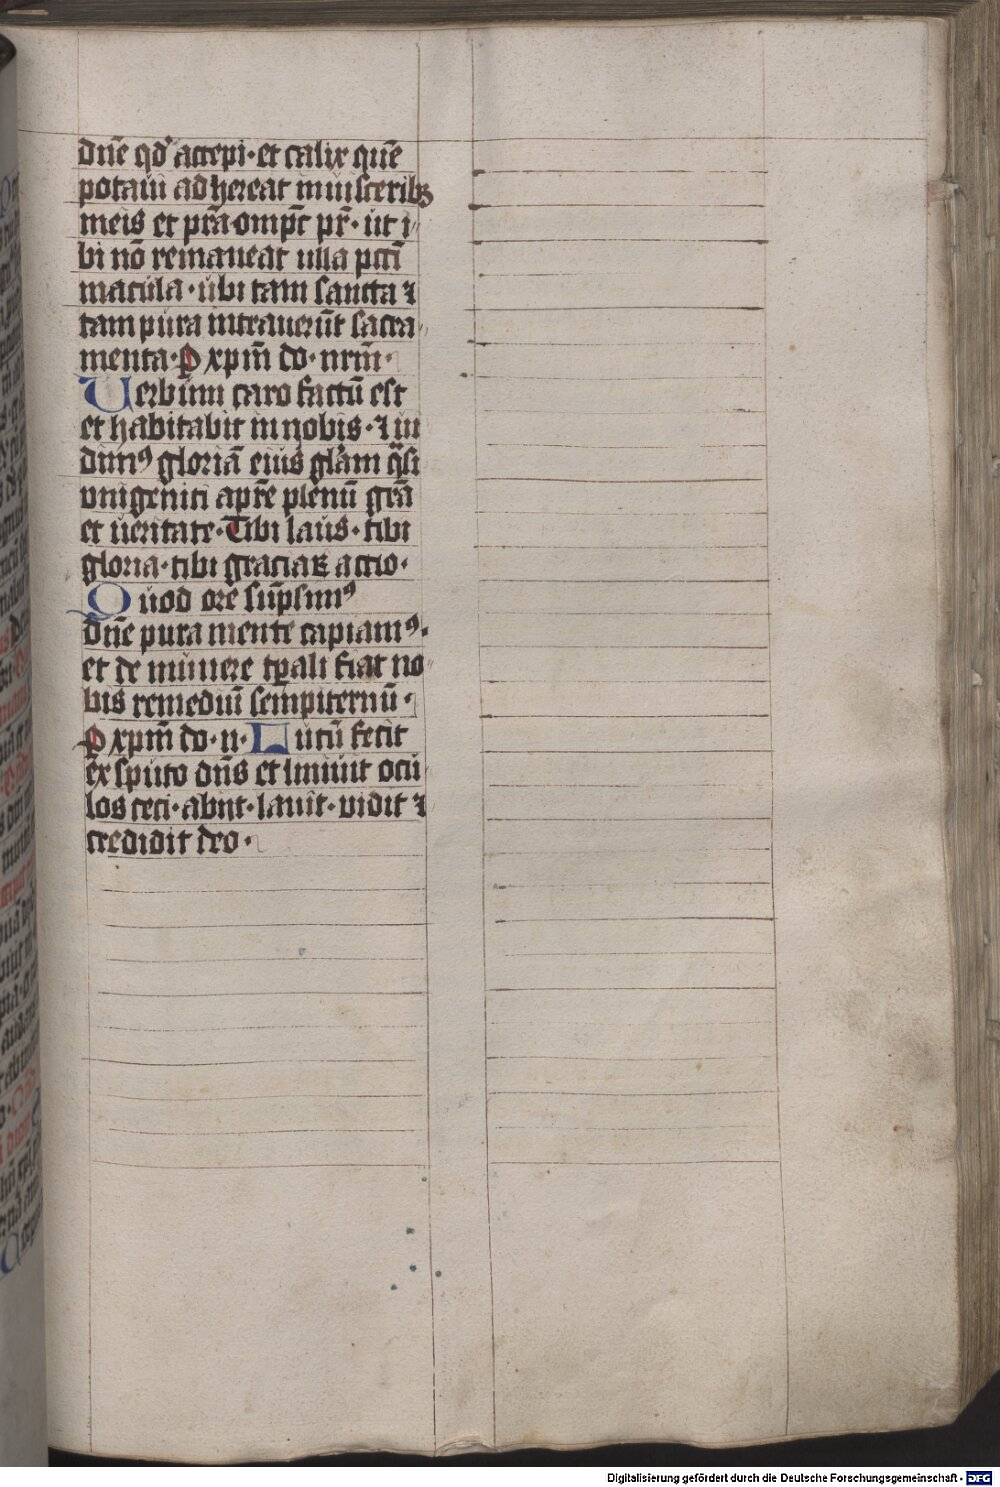 dn̄e qd̓ accepi · et calix quē
potaui adhereat visceribꝫ
meis et p̄ra omp̄c pr̄ · ut i
bi nō remaneat ulla pctī
macula · ubi tam sancta ⁊
tam pura intrauerūt sacra
menta · ꝑ xpm̄ do · nrm̄ ·
Uerbum caro factū est
et habitabit in nobis · ⁊ ui
dimꝰ gloriā eius gl̄am q̄si
vnigeniti a pr̄e plenū grā
et ueritate · Tibi laus · tibi
gloria · tibi graciaꝝ actio ·
Quod ore sūpsimꝰ
dn̄e pura mente capiamꝰ ·
et de munere tꝑali fiat no
bis remediū sempiternū ·
ꝑ xpm̄ do · n · Lutū fecit
ex sputo dn̄s et liniuit ocu
los ceci · abiit · lauit · vidit ⁊
credidit deo ·
Digitalisierung gefördert durch die Deutsche Forschungsgemeinschaft · DFG